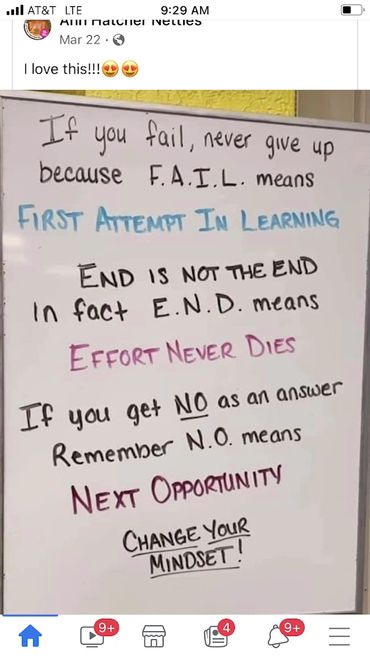 AT&T LTE 9:29 AM
Ann Hatcher Nettles
Mar 22 ·
I love this!!!😍😍
If you fail, never give up
because F.A.I.L. means
FIRST ATTEMPT IN LEARNING
END IS NOT THE END
In fact E.N.D. means
EFFORT NEVER DIES
If you get NO as an answer
Remember N.O. means
NEXT OPPORTUNITY
CHANGE YOUR
MINDSET!
9+ 4 9+